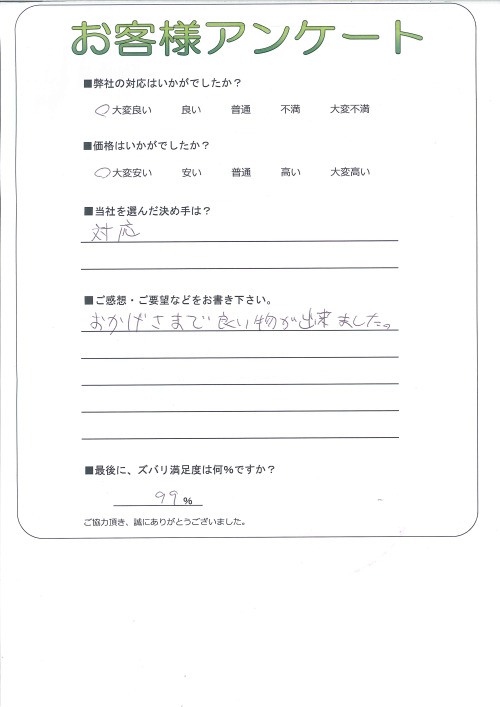 お客様アンケート
■弊社の対応はいかがでしたか？
大変良い 良い 普通 不満 大変不満
■価格はいかがでしたか？
大変安い 安い 普通 高い 大変高い
■当社を選んだ決め手は？
対応
■ご感想・ご要望などをお書き下さい。
おかげさまで良い物が出来ました。
■最後に、ズバリ満足度は何％ですか？
99％
ご協力頂き、誠にありがとうございました。